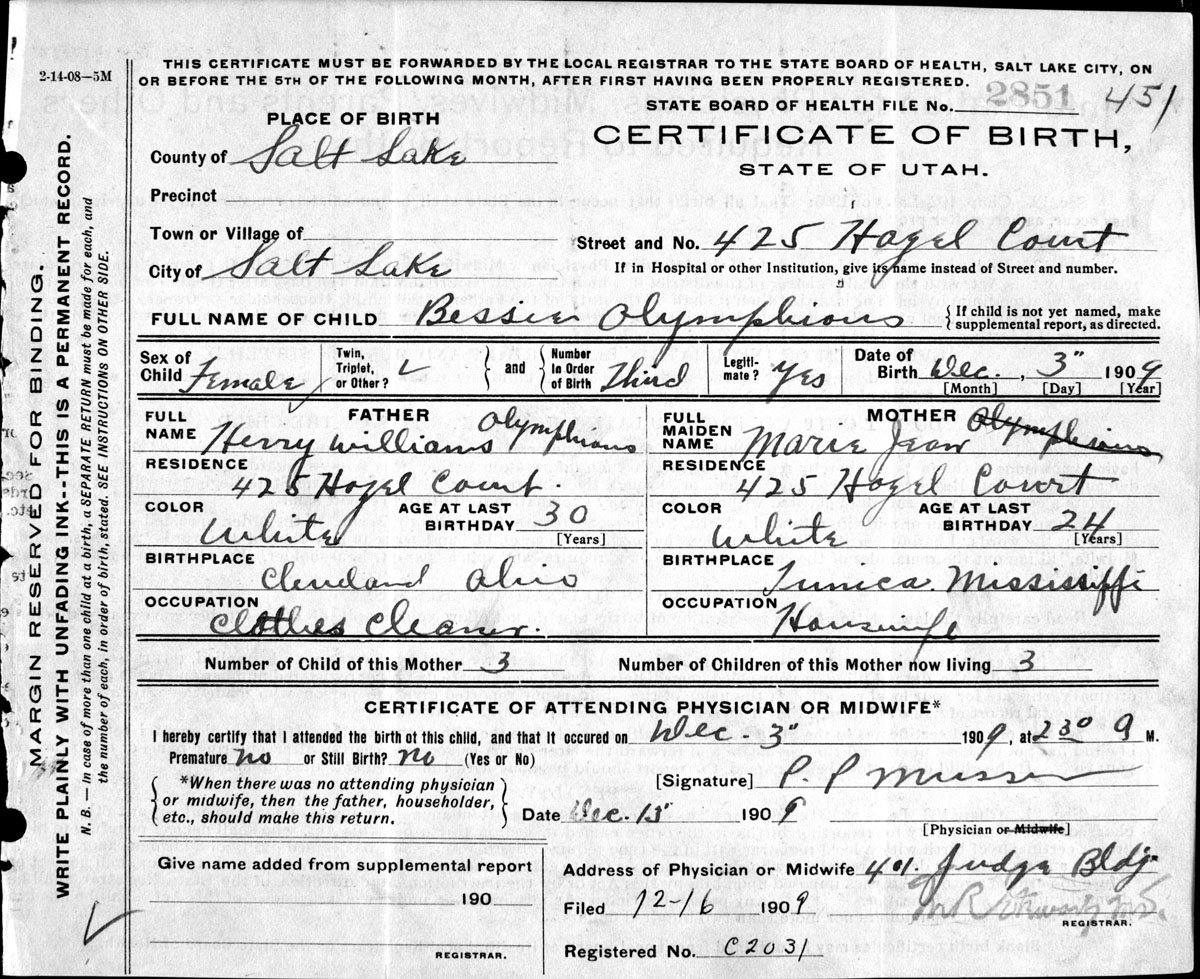 2-14-08—5M
THIS CERTIFICATE MUST BE FORWARDED BY THE LOCAL REGISTRAR TO THE STATE BOARD OF HEALTH, SALT LAKE CITY, ON
OR BEFORE THE 5TH OF THE FOLLOWING MONTH, AFTER FIRST HAVING BEEN PROPERLY REGISTERED.
STATE BOARD OF HEALTH FILE No. 2851 451
PLACE OF BIRTH
CERTIFICATE OF BIRTH,
STATE OF UTAH.
County of Salt Lake
Precinct
Town or Village of
Street and No. 425 Hazel Court
City of Salt Lake
If in Hospital or other Institution, give its name instead of Street and number.
FULL NAME OF CHILD Bessie Olymphious
{ If child is not yet named, make
supplemental report, as directed.
Sex of Child Female
Twin, Triplet, or Other?
} and {
Number In Order of Birth Third
Legiti-mate? Yes
Date of Birth Dec. 3" 1909
[Month] [Day] [Year]
FATHER
FULL NAME Henry Williams Olymphious
RESIDENCE 425 Hazel Court.
COLOR White
AGE AT LAST BIRTHDAY 30
[Years]
BIRTHPLACE Cleveland Ohio
OCCUPATION Clothes Cleaner.
MOTHER
FULL MAIDEN NAME Marie Jean Olymphious
RESIDENCE 425 Hazel Court
COLOR White
AGE AT LAST BIRTHDAY 24
[Years]
BIRTHPLACE Tunica. Mississippi
OCCUPATION Housewife
Number of Child of this Mother 3 Number of Children of this Mother now living 3
CERTIFICATE OF ATTENDING PHYSICIAN OR MIDWIFE*
I hereby certify that I attended the birth of this child, and that it occured on Dec 3" 1909, at 230 M.
Premature no or Still Birth? no (Yes or No)
{ *When there was no attending physician
or midwife, then the father, householder,
etc., should make this return. }
[Signature]
Date Dec. 13" 1909
[Physician or Midwife]
Give name added from supplemental report
190
REGISTRAR.
Address of Physician or Midwife 401. Judge Bldg.
Filed 12-16 1909
REGISTRAR.
Registered No. C2031
MARGIN RESERVED FOR BINDING.
WRITE PLAINLY WITH UNFADING INK--THIS IS A PERMANENT RECORD.
N. B.—In case of more than one child at a birth, a SEPARATE RETURN must be made for each, and
the number of each, in order of birth, stated. SEE INSTRUCTIONS ON OTHER SIDE.